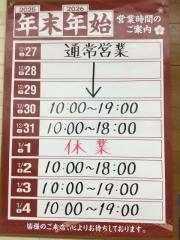 2025 2026
年末年始 営業時間のご案内
12/27 通常営業
12/28
12/29
12/30 10:00〜19:00
12/31 10:00〜18:00
1/1 休業
1/2 10:00〜18:00
1/3 10:00〜19:00
1/4 10:00〜19:00
皆様のご来店、心よりお待ちしております。